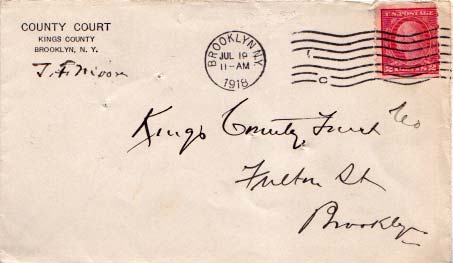 COUNTY COURT
KINGS COUNTY
BROOKLYN, N. Y.
BROOKLYN, N.Y.
JUL 19
11-AM
1918
C
U.S. POSTAGE
Kings County Trust Co
Fulton St
Brooklyn